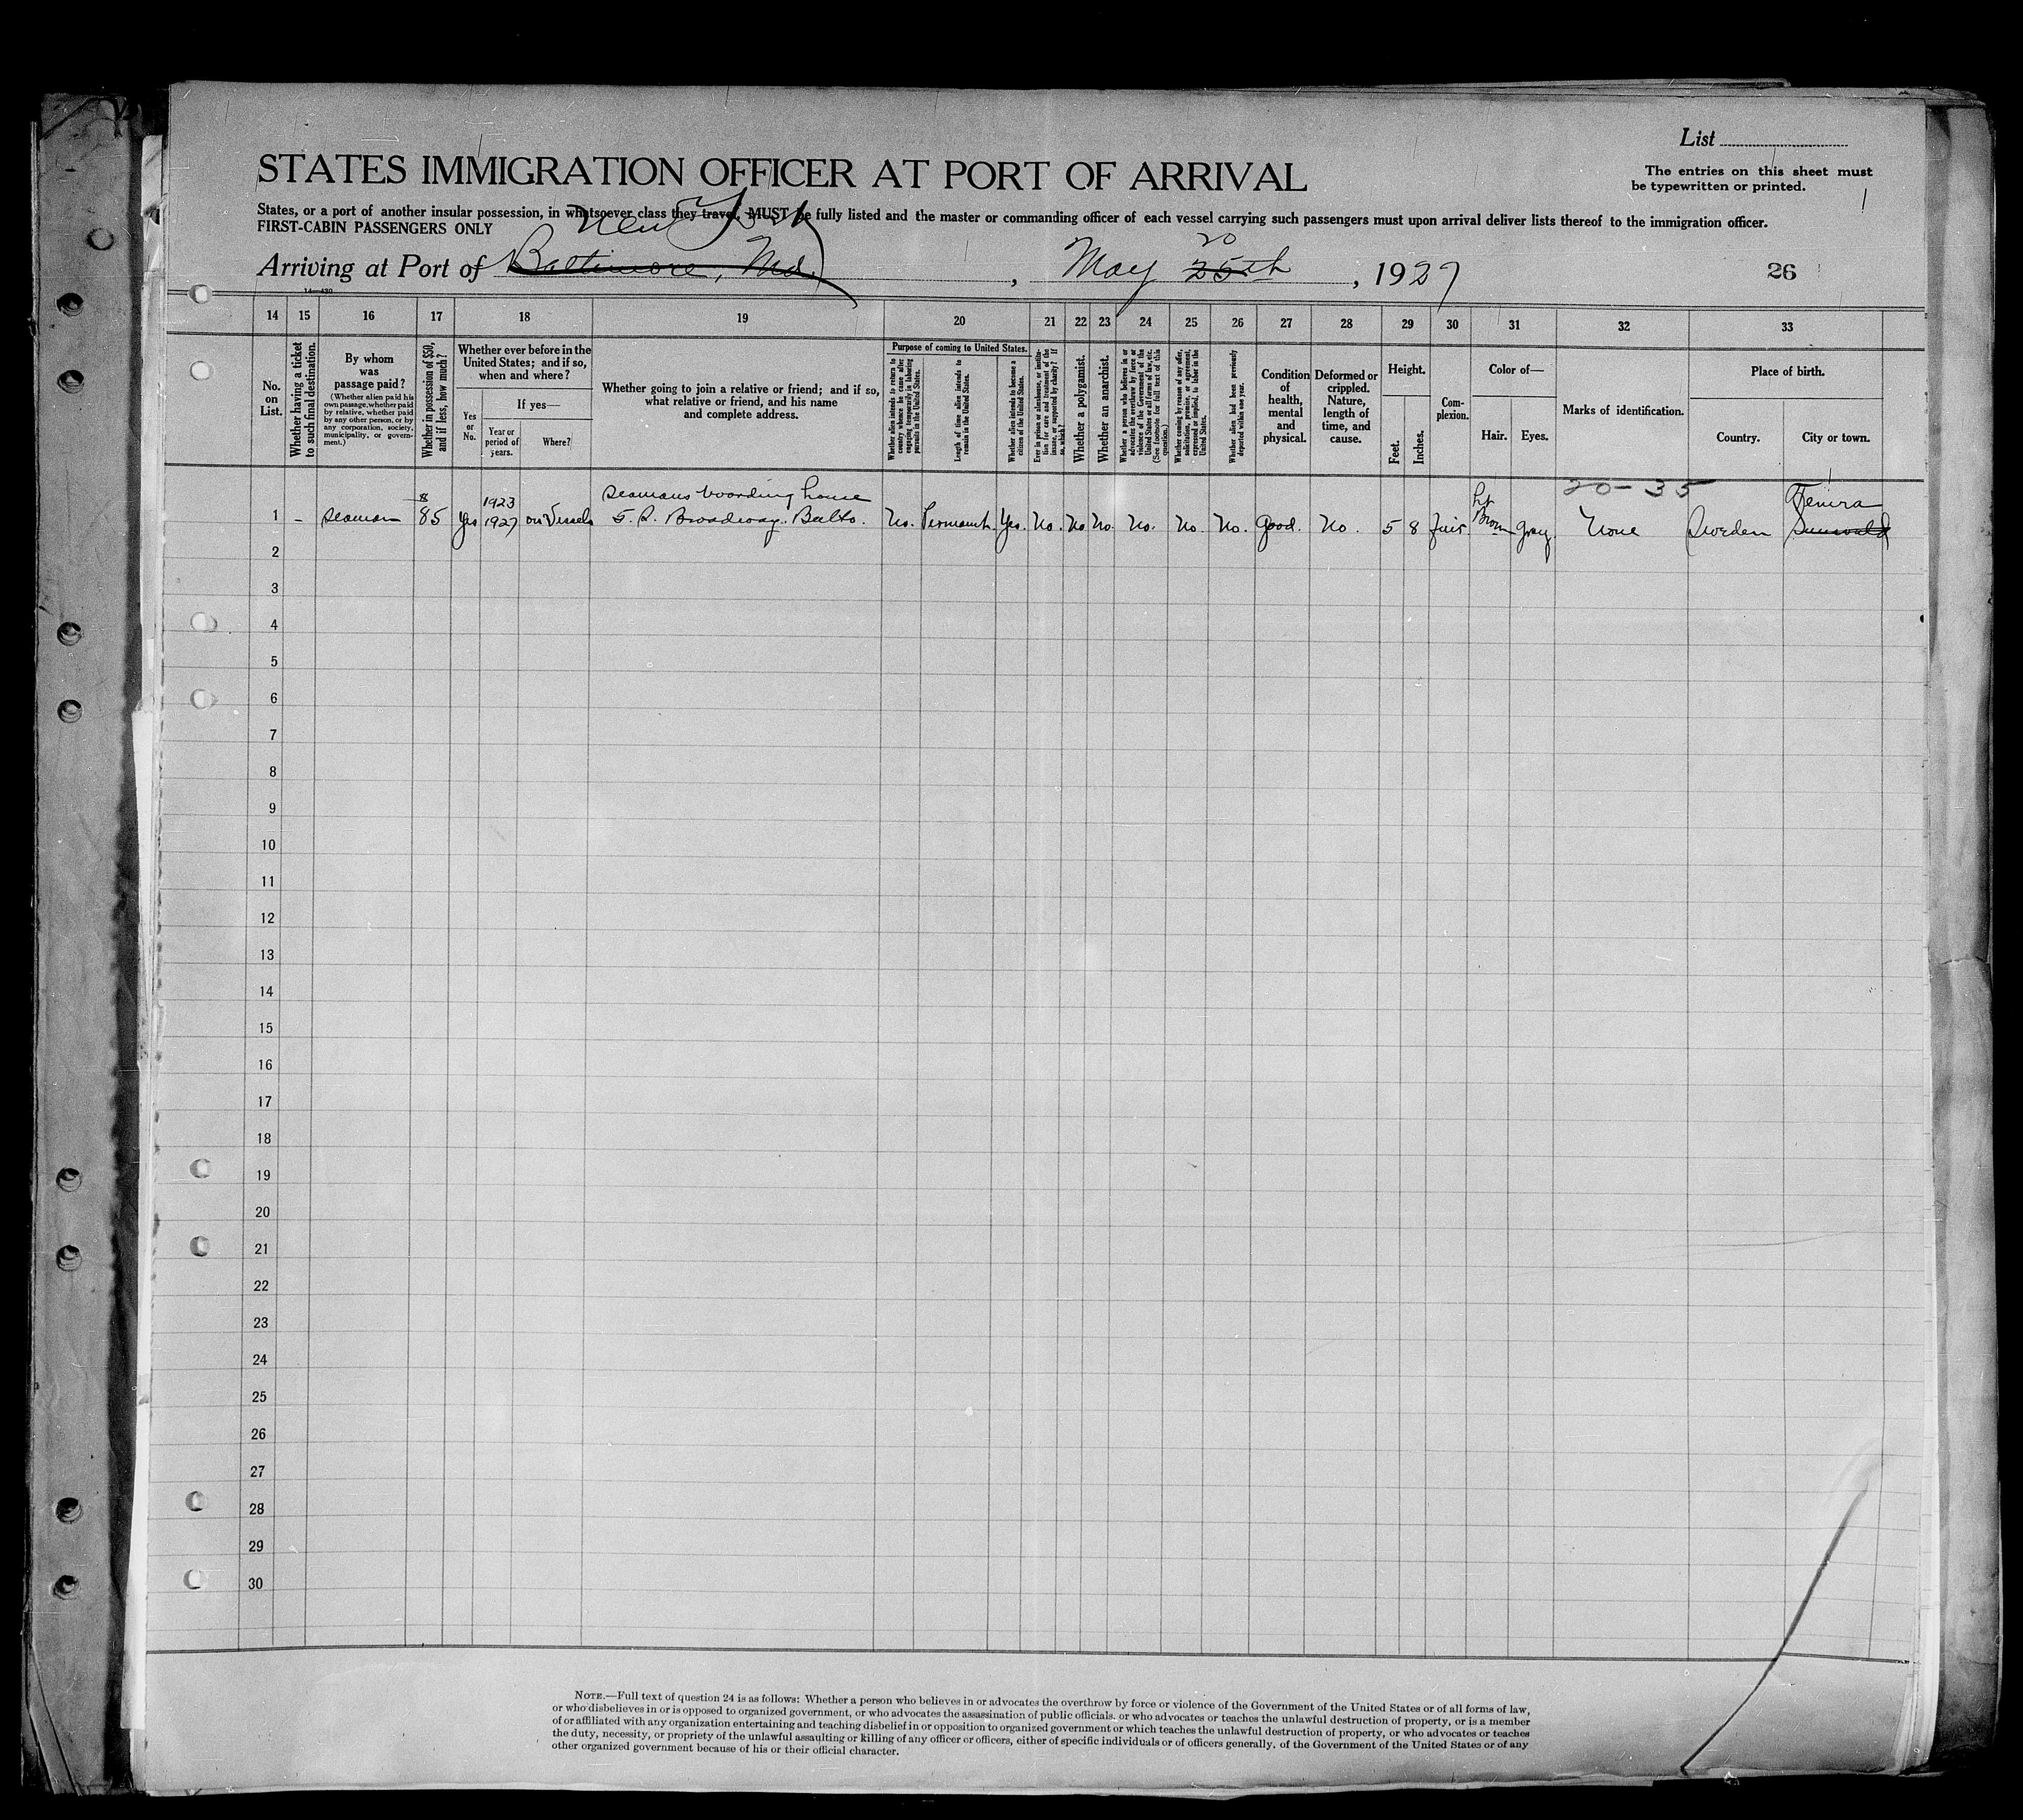 List
STATES IMMIGRATION OFFICER AT PORT OF ARRIVAL
The entries on this sheet must
be typewritten or printed.
States, or a port of another insular possession, in whatsoever class they travel, MUST be fully listed and the master or commanding officer of each vessel carrying such passengers must upon arrival deliver lists thereof to the immigration officer.
FIRST-CABIN PASSENGERS ONLY
New York
20
Arriving at Port of Baltimore, Md. , May 25th , 1927
26
14—430
14 15 16 17 18 19 20 21 22 23 24 25 26 27 28 29 30 31 32 33
No. on List.
Whether having a ticket to such final destination.
By whom was passage paid?
(Whether alien paid his own passage, whether paid by relative, whether paid by any other person, or by any corporation, society, municipality, or government.)
Whether in possession of $50, and if less, how much?
Whether ever before in the United States; and if so, when and where?
Yes or No.
If yes—
Year or period of years.
Where?
Whether going to join a relative or friend; and if so, what relative or friend, and his name and complete address.
Purpose of coming to United States.
Whether alien intends to return to country whence he came after engaging temporarily in laboring pursuits in the United States.
Length of time alien intends to remain in the United States.
Whether alien intends to become a citizen of the United States.
Ever in prison or almshouse, or institution for care and treatment of the insane, or supported by charity? If so, which?
Whether a polygamist.
Whether an anarchist.
Whether a person who believes in or advocates the overthrow by force or violence of the Government of the United States or all forms of law, etc. (See footnote for full text of this question.)
Whether coming by reason of any offer, solicitation, promise, or agreement, expressed or implied, to labor in the United States.
Whether alien had been previously deported within one year.
Condition of health, mental and physical.
Deformed or crippled. Nature, length of time, and cause.
Height.
Feet.
Inches.
Complexion.
Color of—
Hair.
Eyes.
Marks of identification.
Place of birth.
Country.
City or town.
8 1923 Seamans boarding house Lt 20-35
1 - seaman 85 Yes 1927 on Vessels S. Broadway. Balto. No. Permanent Yes. No. No No. No. No. No. Good. No. 5 8 fair. Brown gray. None Sweden
2
3
4
5
6
7
8
9
10
11
12
13
14
15
16
17
18
19
20
21
22
23
24
25
26
27
28
29
30
NOTE.—Full text of question 24 is as follows: Whether a person who believes in or advocates the overthrow by force or violence of the Government of the United States or of all forms of law,
or who disbelieves in or is opposed to organized government, or who advocates the assassination of public officials, or who advocates or teaches the unlawful destruction of property, or is a member
of or affiliated with any organization entertaining and teaching disbelief in or opposition to organized government or which teaches the unlawful destruction of property, or who advocates or teaches
the duty, necessity, or propriety of the unlawful assaulting or killing of any officer or officers, either of specific individuals or of officers generally, of the Government of the United States or of any
other organized government because of his or their official character.